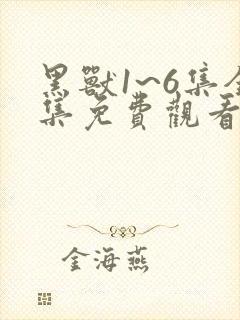 黑獸1~6集全
集免費觀看
金海燕